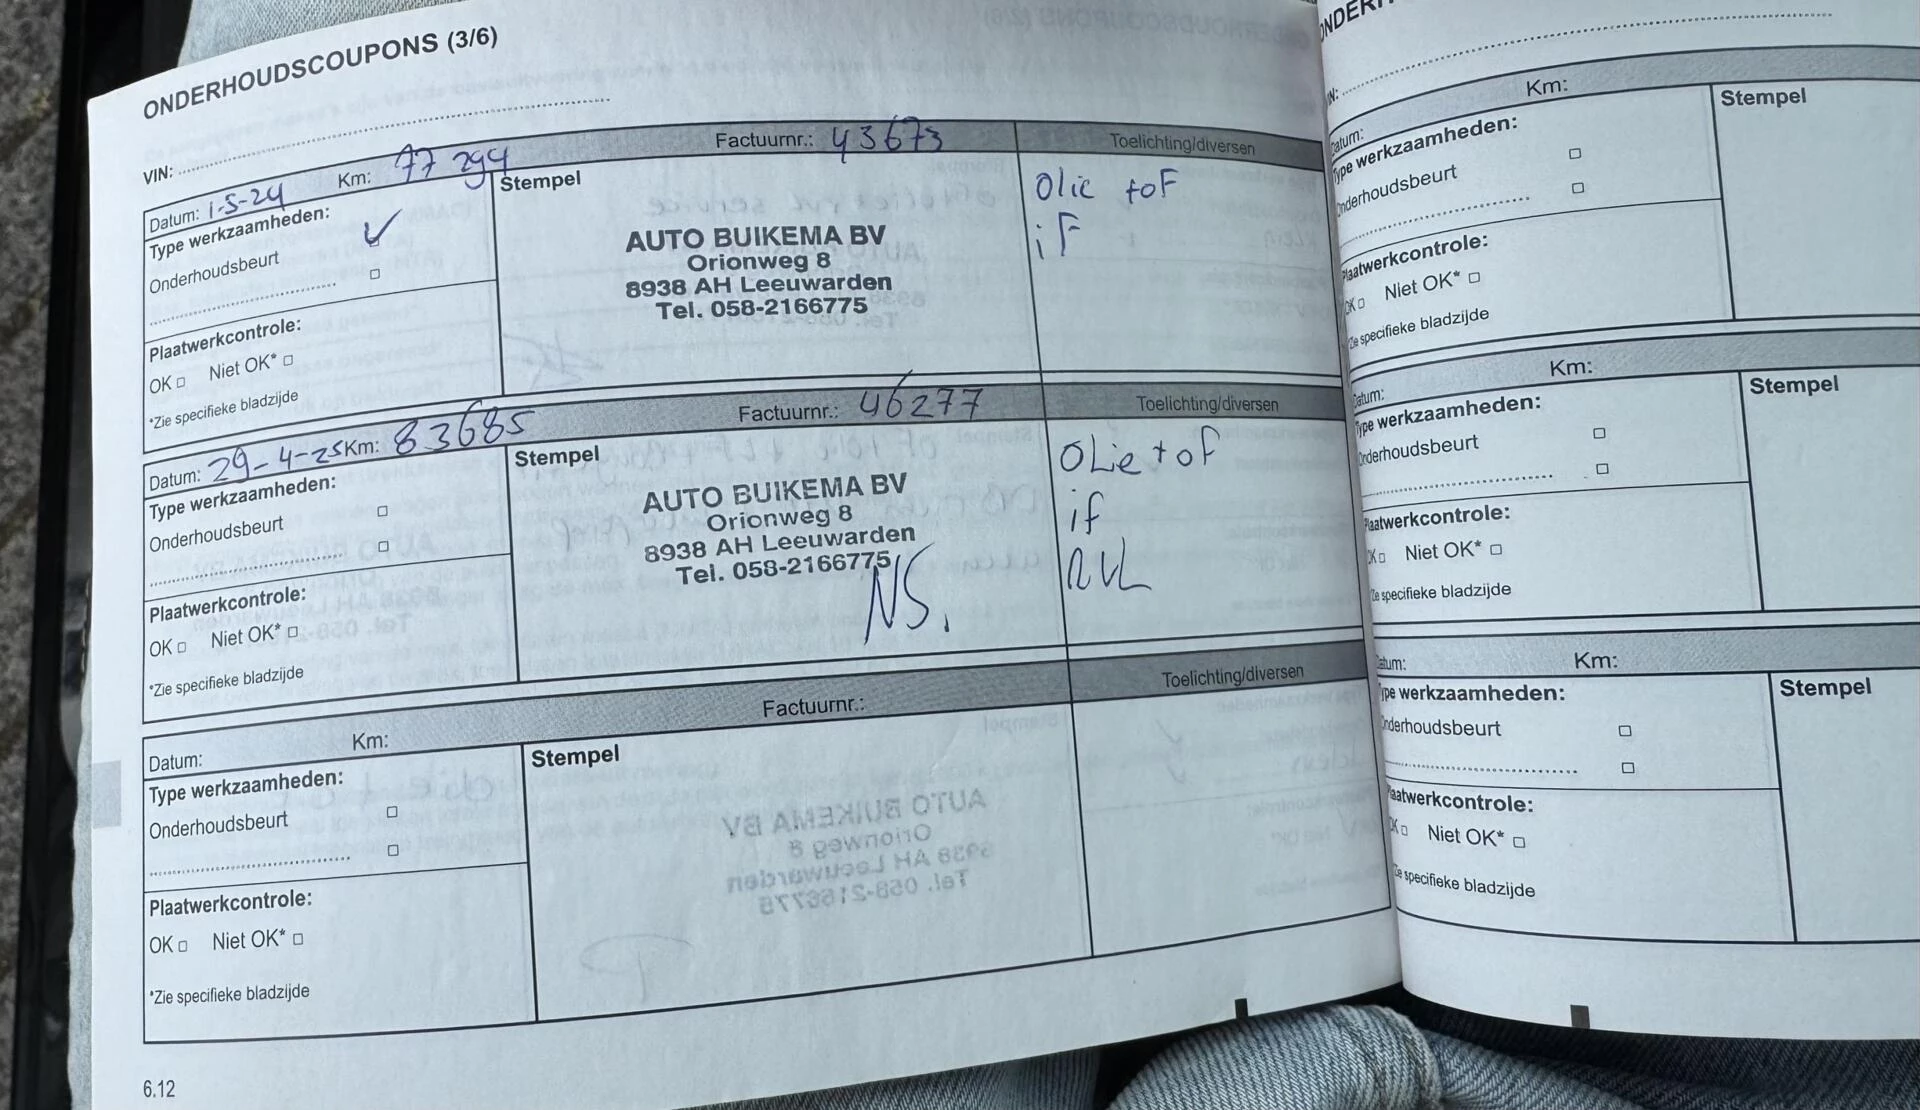 ONDERHOUDSCOUPONS (3/6)
VIN:
Datum: 1-5-24 Km: 77 294 Factuurnr.: 43673 Toelichting/diversen
Type werkzaamheden:
Onderhoudsbeurt
Plaatwerkcontrole:
OK Niet OK*
*Zie specifieke bladzijde
Stempel
AUTO BUIKEMA BV
Orionweg 8
8938 AH Leeuwarden
Tel. 058-2166775
Olie + oF
iF
Datum: 29-4-25 Km: 83685 Factuurnr.: 46277 Toelichting/diversen
Type werkzaamheden:
Onderhoudsbeurt
Plaatwerkcontrole:
OK Niet OK*
*Zie specifieke bladzijde
Stempel
AUTO BUIKEMA BV
Orionweg 8
8938 AH Leeuwarden
Tel. 058-2166775
NS.
OLie + oF
if
Datum: Km: Factuurnr.: Toelichting/diversen
Type werkzaamheden:
Onderhoudsbeurt
Plaatwerkcontrole:
OK Niet OK*
*Zie specifieke bladzijde
Stempel
AUTO BUIKEMA BV
Orionweg 8
8938 AH Leeuwarden
Tel. 058-2166775
6.12
Km:
Stempel
Type werkzaamheden:
Onderhoudsbeurt
Plaatwerkcontrole:
OK Niet OK*
Zie specifieke bladzijde
Datum: Km:
Stempel
Type werkzaamheden:
Onderhoudsbeurt
Plaatwerkcontrole:
OK Niet OK*
Zie specifieke bladzijde
Datum: Km:
Stempel
Type werkzaamheden:
Onderhoudsbeurt
Plaatwerkcontrole:
OK Niet OK*
Zie specifieke bladzijde